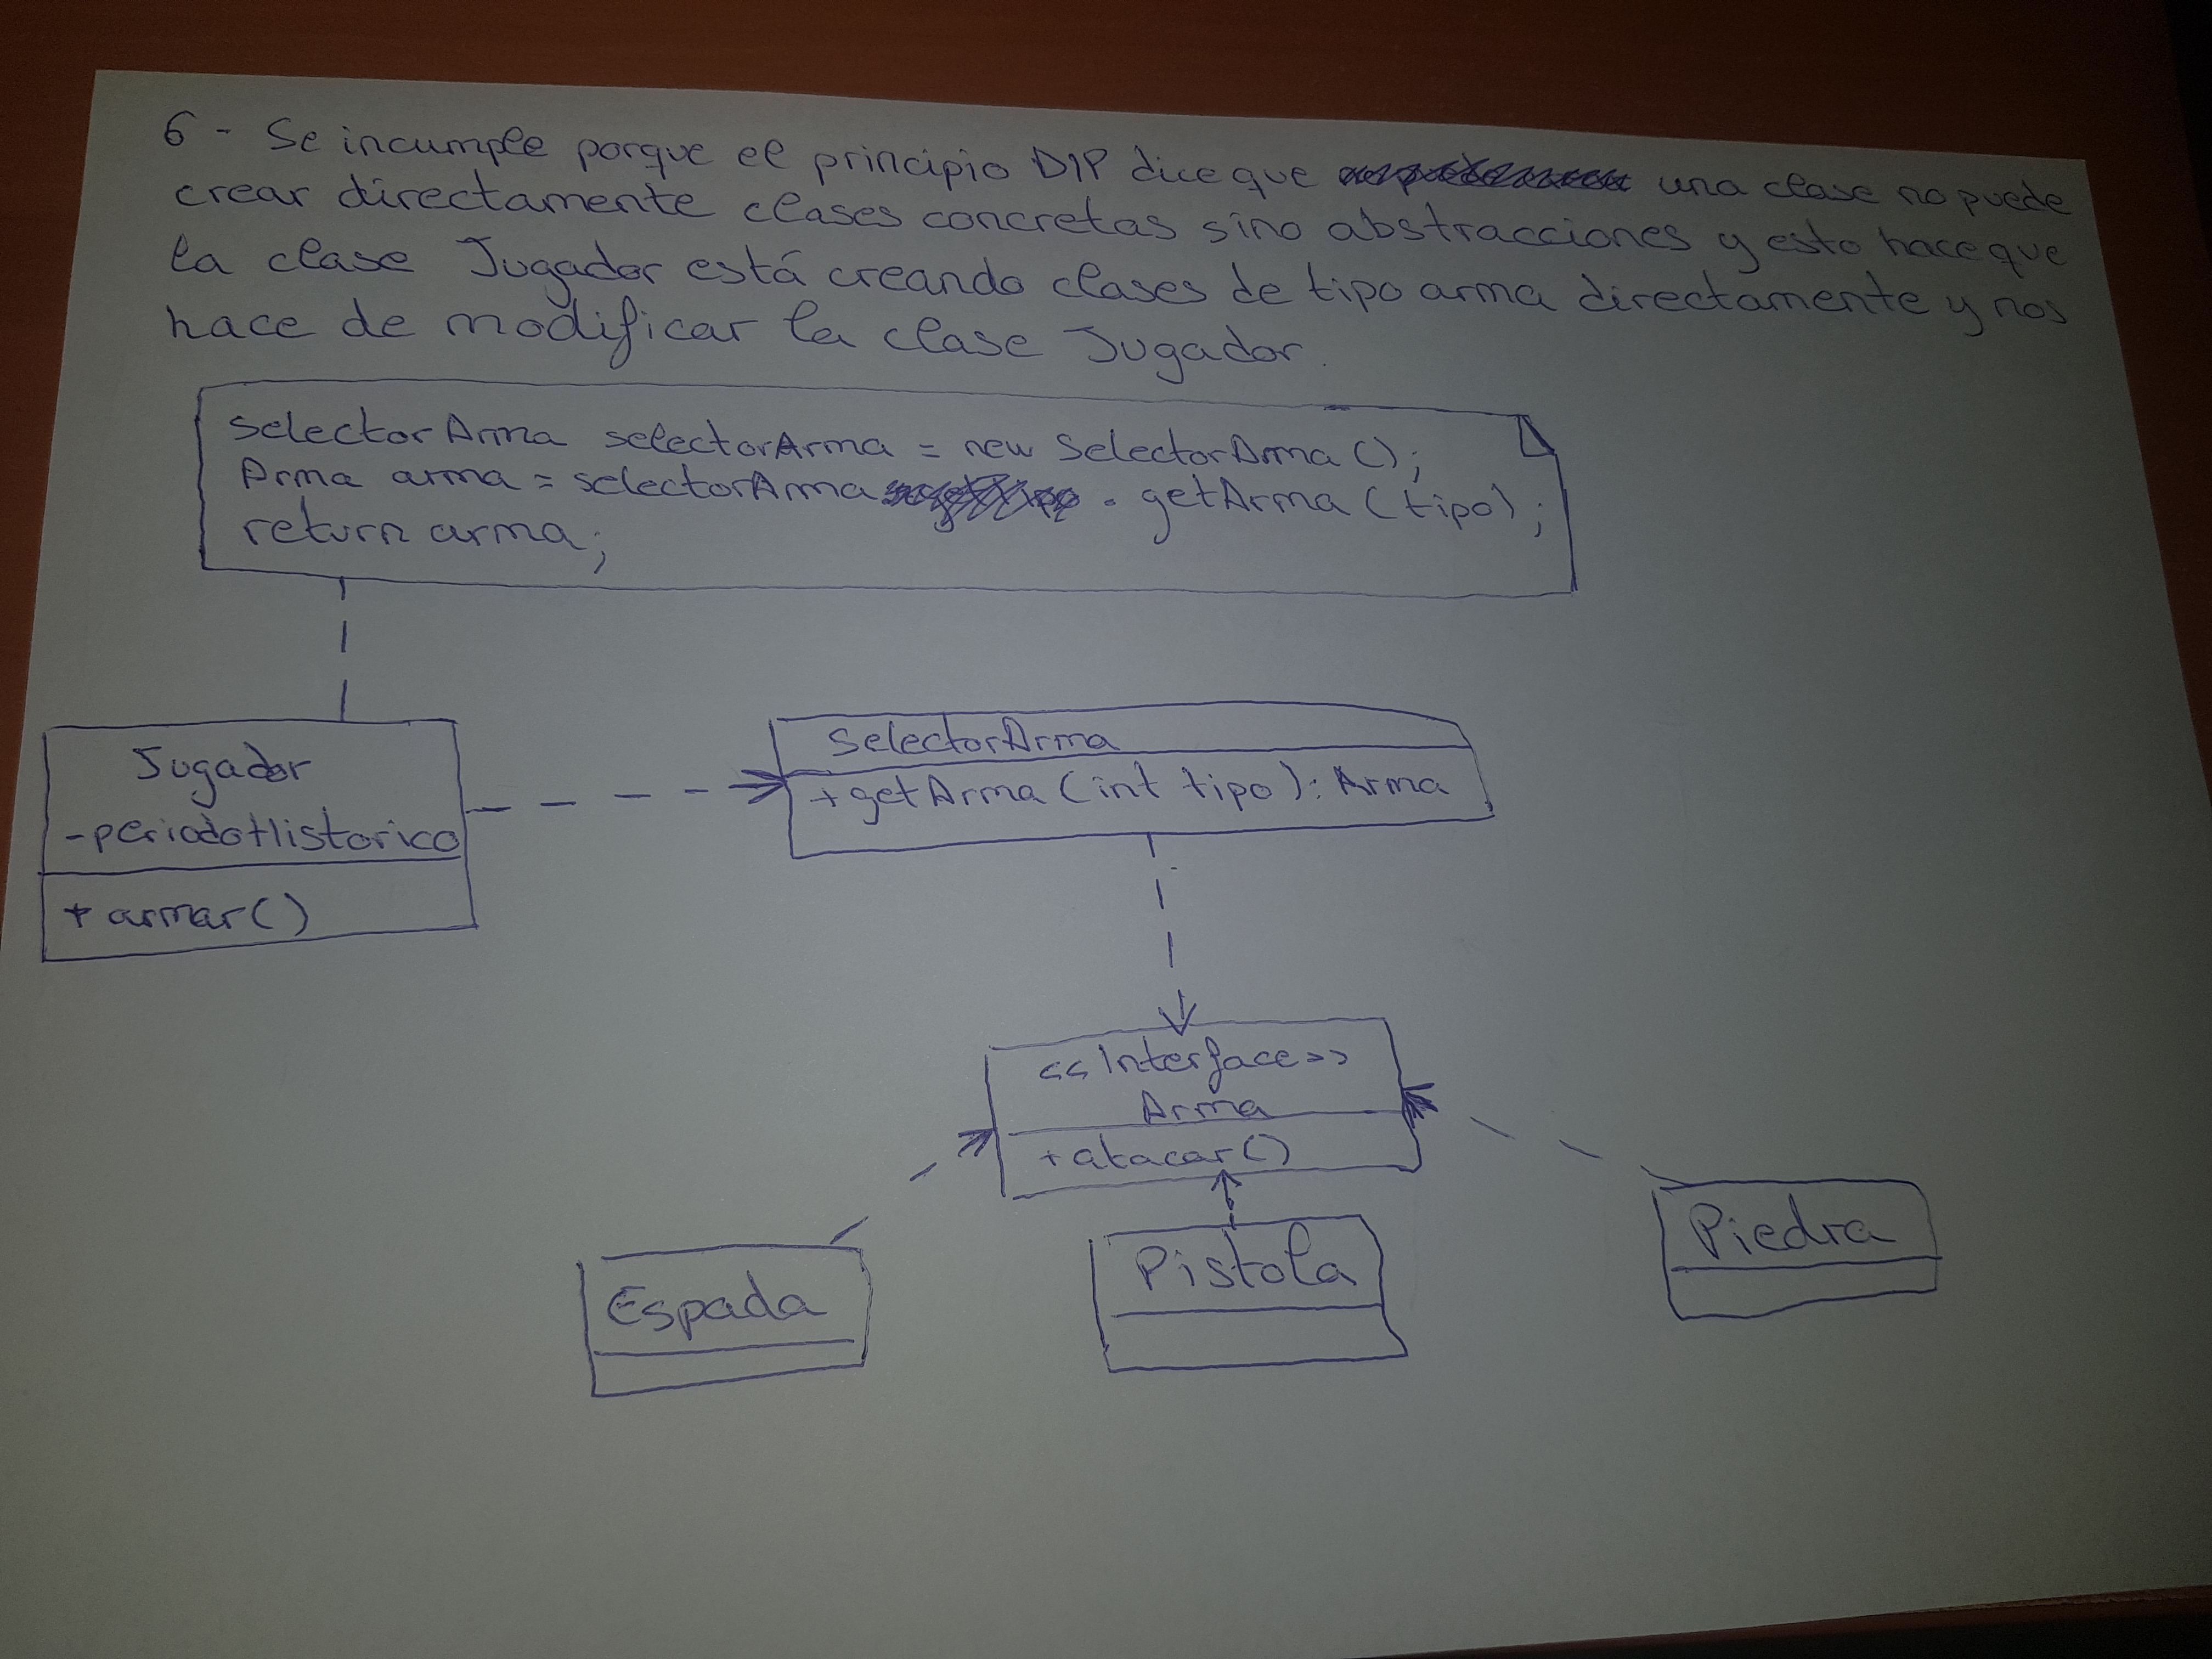 6- Se incumple porque el principio DIP dice que una clase no puede
crear directamente clases concretas sino abstracciones y esto hace que
la clase Jugador está creando clases de tipo arma directamente y nos
hace de modificar la clase Jugador.
SelectorArma selectorArma = new SelectorArma();
Arma arma = selectorArma . getArma(tipo);
return arma;
Jugador
-periodoHistorico
+armar()
SelectorArma
+getArma(int tipo): Arma
<<Interface>>
Arma
+atacar()
Espada
Pistola
Piedra